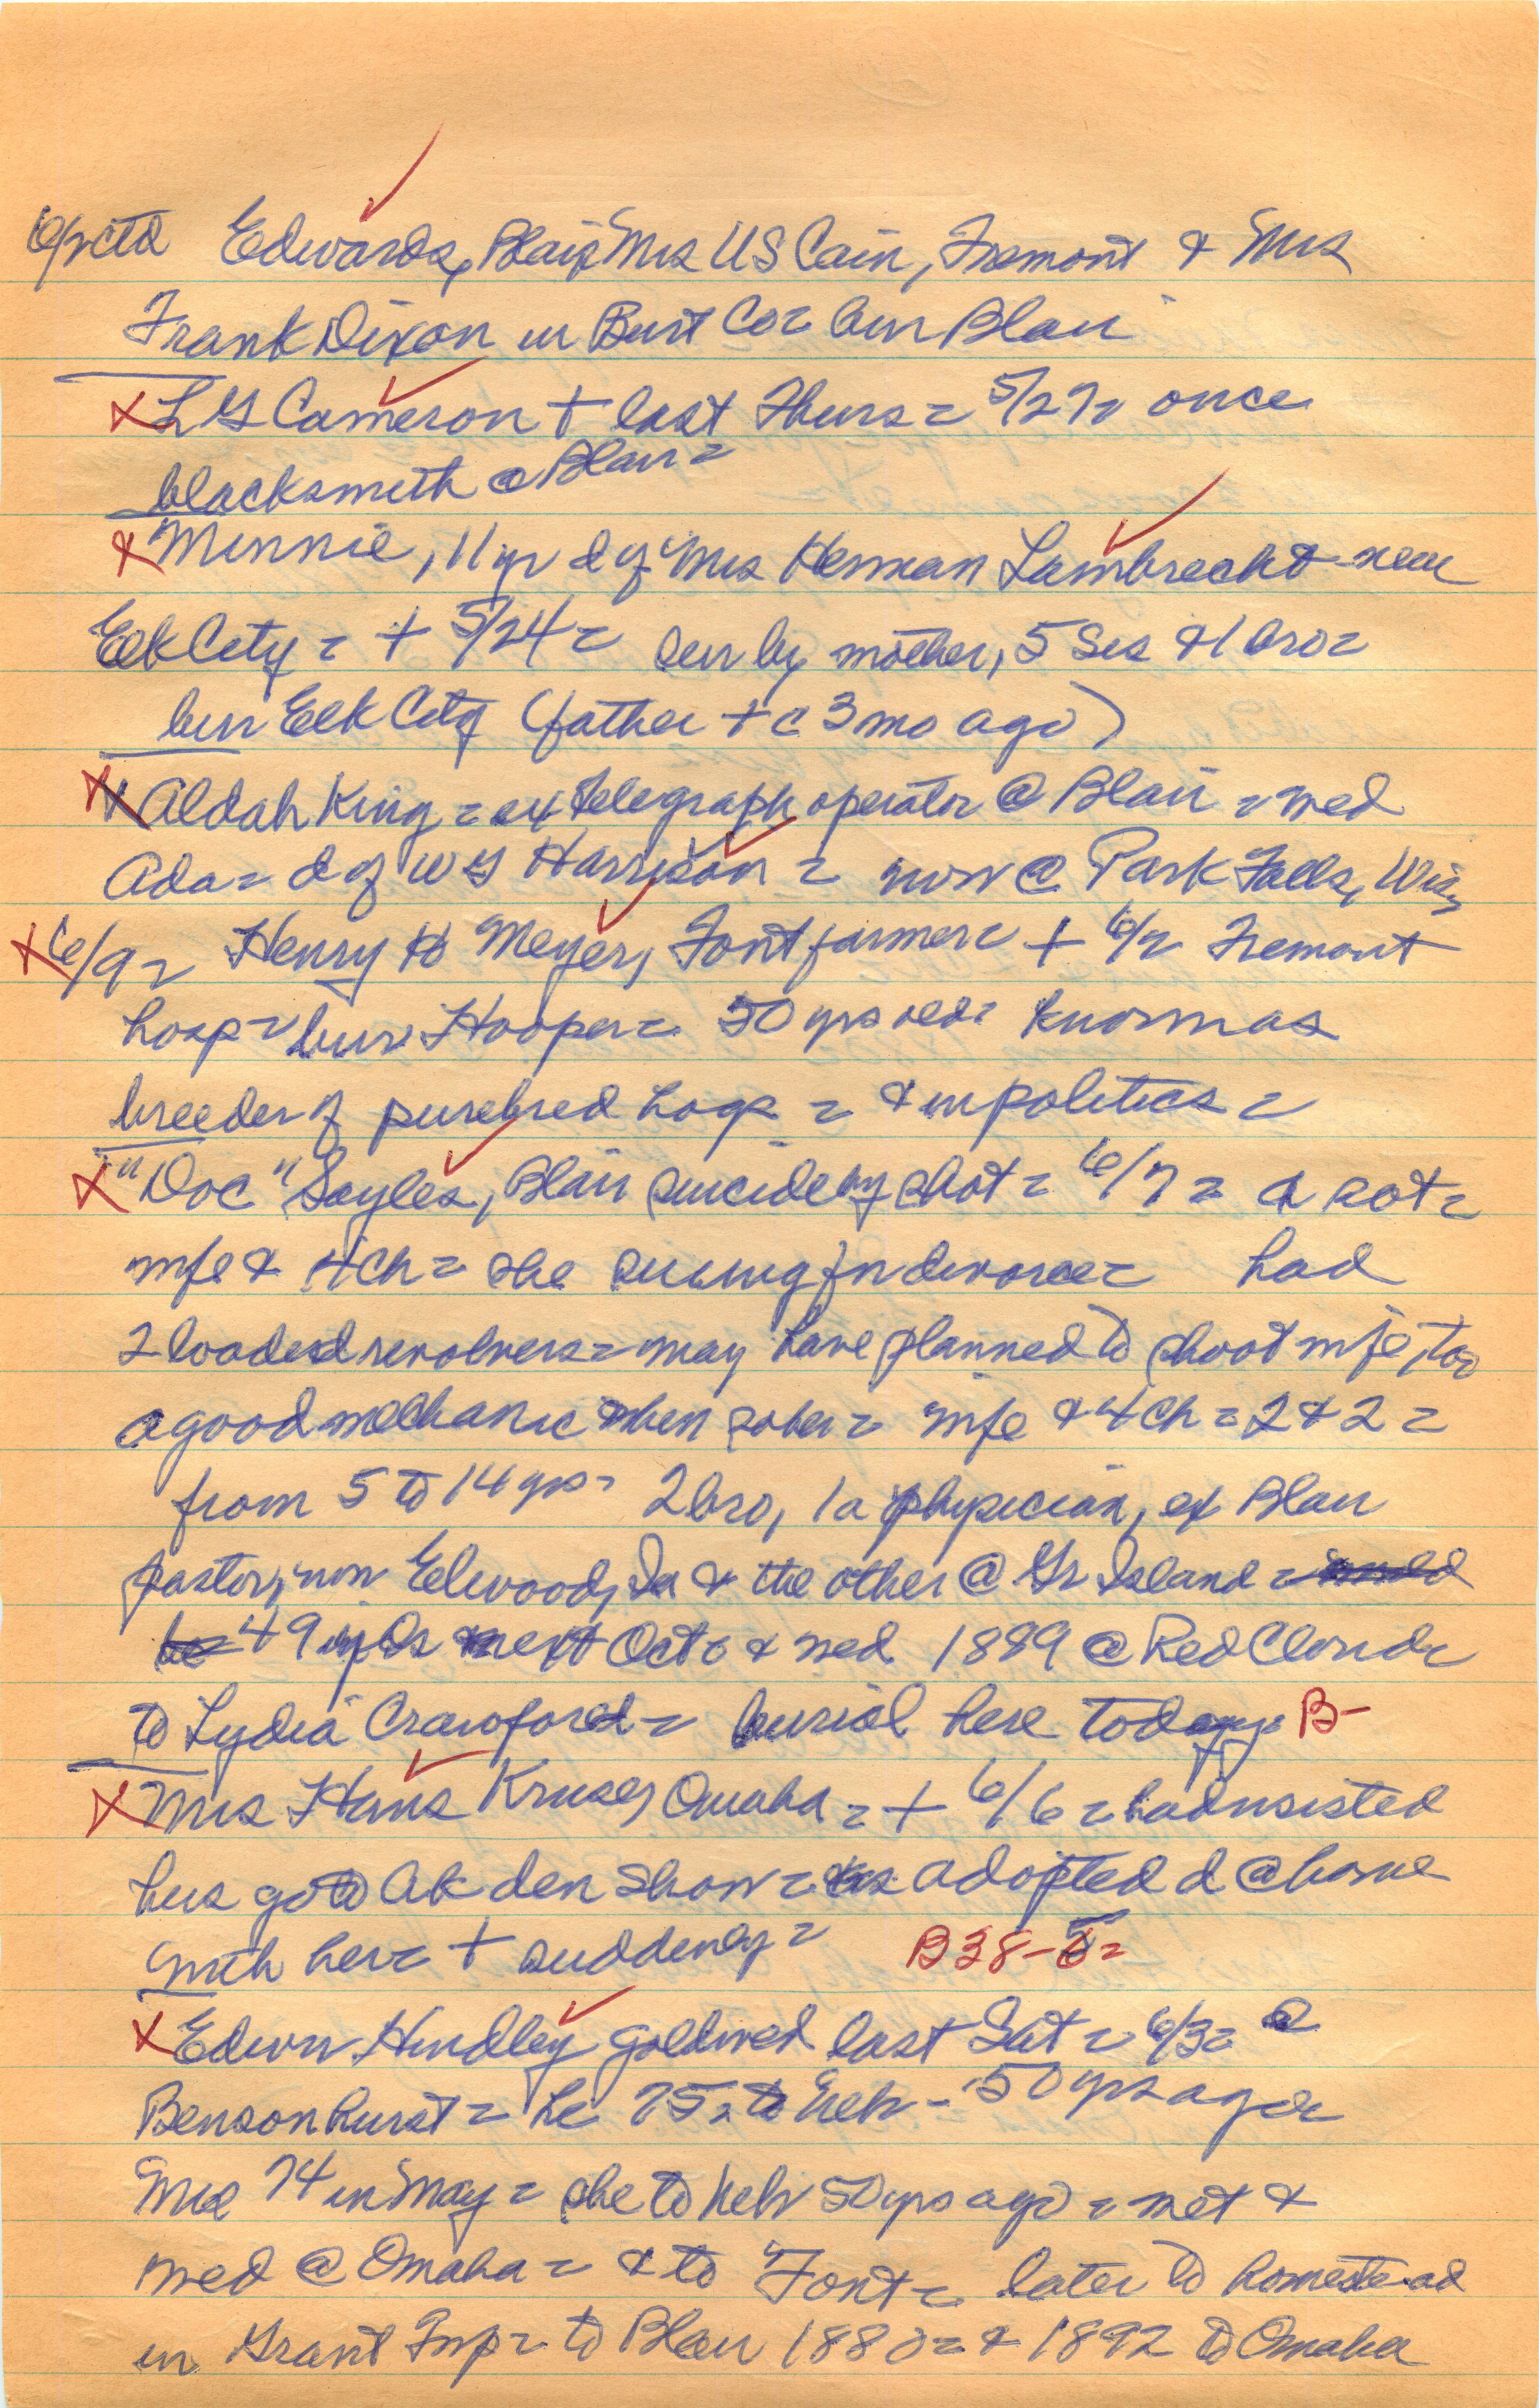 6/2 ctd Edwards, Blair, Mrs US Cain, Fremont & Mrs
Frank Dixon in Burt Co = bur Blair
x L G Cameron + last Thurs = 5/27 = once
blacksmith @ Blair =
x Minnie, 11 yr d of Mrs Herman Lambrecht near
Elk City = + 5/24 = sur by mother, 5 Sis & 1 bro =
bur Elk City (father + c 3 mo ago)
x Aldah King = ex telegraph operator @ Blair = wed
Ada = d of W G Harrison = now @ Park Falls, Wis
x 6/9 = Henry H Meyer, Font farmer = + 6/2 Fremont
hosp = bur Hooper = 50 yrs old = known as
breeder of purebred hogs = & in politics =
x "Doc" Sayles, Blair suicide by shot = 6/7 = a sot =
wife & 4 ch = she suing for divorce = had
2 loaded revolvers = may have planned to shoot wife, too
a good mechanic when sober = wife & 4 ch = 2 & 2 =
from 5 to 14 yrs = 2 bro, 1 a physician, ex Blair
pastor, now Elwood, Ia & the other @ Gr Island =
be 49 next Oct 6 & wed 1889 @ Red Cloud =
to Lydia Crawford = burial here today = B-
x Mrs Hans Kruse, Omaha = + 6/6 = had insisted
hus go to Ak den show = adopted d @ home
with her = + suddenly = B38-5=
x Edwin Hindley gold wed last Sat = 6/3 = @
Bensonhurst = he 75 = to Neb - 50 yrs ago =
Mrs 74 in May = she to Neb 50 yrs ago = met &
wed @ Omaha = & to Font = later to homestead
in Grant Twp = to Blair 1880 = & 1892 to Omaha